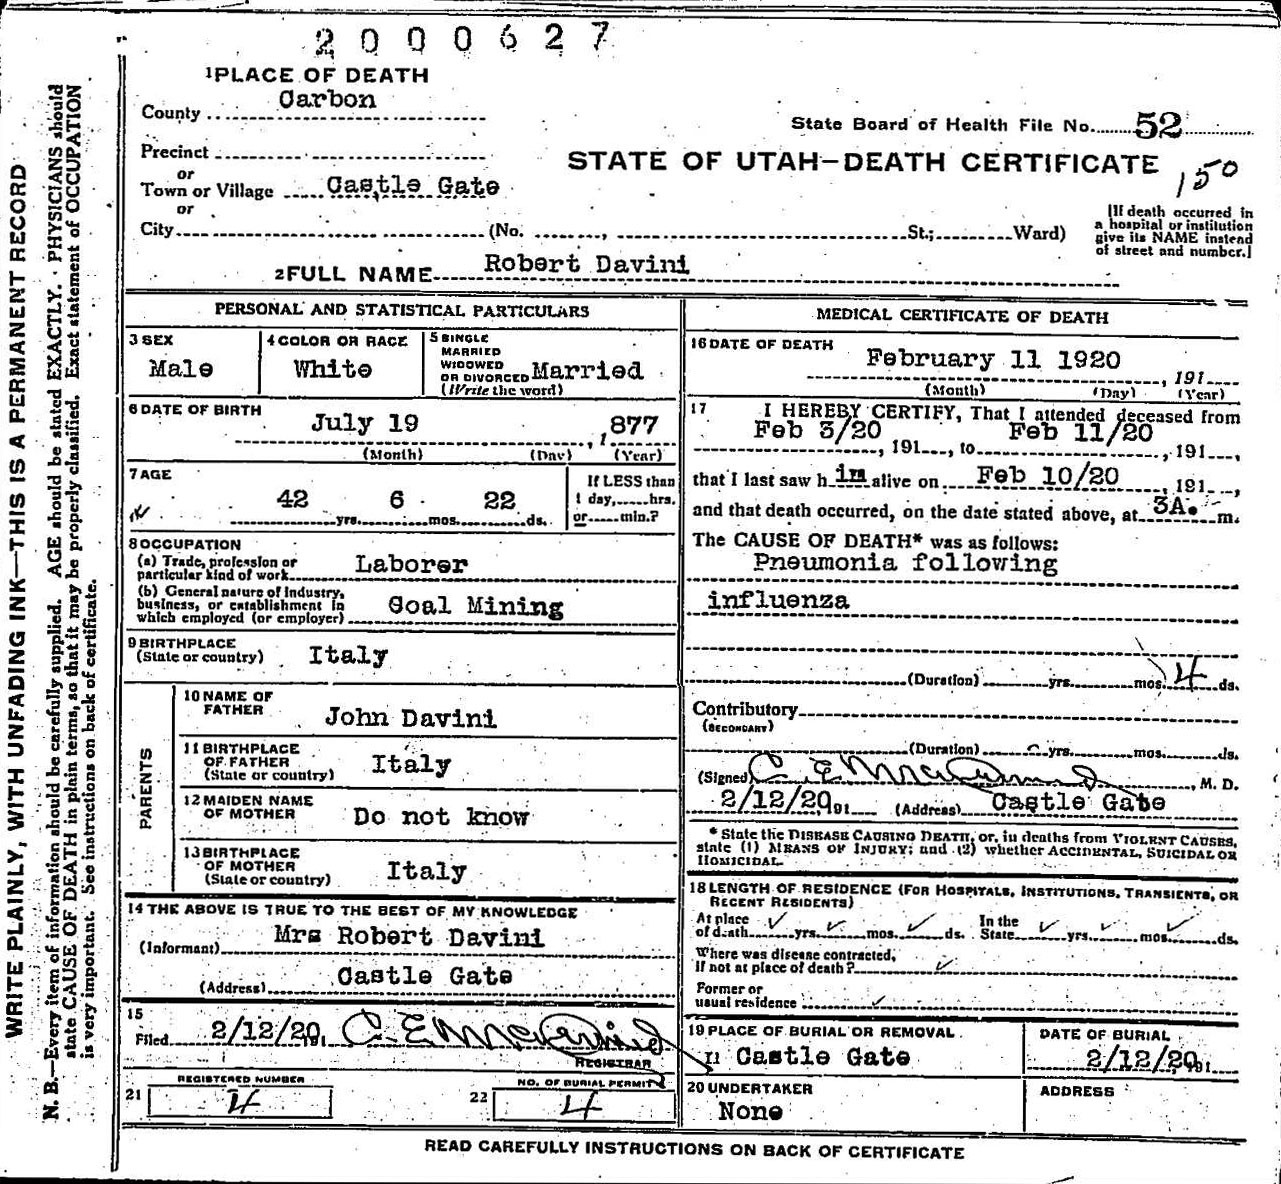 2000627
1 PLACE OF DEATH
County Carbon
State Board of Health File No. 52
Precinct
or
Town or Village Castle Gate
STATE OF UTAH—DEATH CERTIFICATE
150
or
City (No. , St.; Ward)
[If death occurred in
a hospital or institution
give its NAME instead
of street and number.]
2 FULL NAME Robert Davini
PERSONAL AND STATISTICAL PARTICULARS
3 SEX
Male
4 COLOR OR RACE
White
5 SINGLE
MARRIED
WIDOWED
OR DIVORCED Married
(Write the word)
6 DATE OF BIRTH
July 19 , 1 877
(Month) (Day) (Year)
7 AGE
42 yrs. 6 mos. 22 ds.
If LESS than
1 day, hrs.
or min.?
8 OCCUPATION
(a) Trade, profession or
particular kind of work Laborer
(b) General nature of Industry,
business, or establishment in
which employed (or employer) Coal Mining
9 BIRTHPLACE
(State or country) Italy
PARENTS
10 NAME OF
FATHER John Davini
11 BIRTHPLACE
OF FATHER
(State or country) Italy
12 MAIDEN NAME
OF MOTHER Do not know
13 BIRTHPLACE
OF MOTHER
(State or country) Italy
14 THE ABOVE IS TRUE TO THE BEST OF MY KNOWLEDGE
(Informant) Mrs Robert Davini
(Address) Castle Gate
15
Filed 2/12/20 191
REGISTRAR
21 REGISTERED NUMBER
4
22 NO. OF BURIAL PERMIT
4
MEDICAL CERTIFICATE OF DEATH
16 DATE OF DEATH
February 11 1920 , 191
(Month) (Day) (Year)
17 I HEREBY CERTIFY, That I attended deceased from
Feb 3/20 , 191 , to Feb 11/20 , 191 ,
that I last saw h im alive on Feb 10/20 , 191 ,
and that death occurred, on the date stated above, at 3A. m.
The CAUSE OF DEATH* was as follows:
Pneumonia following
influenza
(Duration) yrs. mos. 4 ds.
Contributory
(SECONDARY)
(Duration) yrs. mos. ds.
(Signed) , M. D.
2/12/20 191 (Address) Castle Gate
* State the DISEASE CAUSING DEATH, or, in deaths from VIOLENT CAUSES,
state (1) MEANS OF INJURY; and (2) whether ACCIDENTAL, SUICIDAL OR
HOMICIDAL.
18 LENGTH OF RESIDENCE (FOR HOSPITALS, INSTITUTIONS, TRANSIENTS, OR
RECENT RESIDENTS)
At place
of death yrs. mos. ds.
In the
State yrs. mos. ds.
Where was disease contracted,
If not at place of death?
Former or
usual residence
19 PLACE OF BURIAL OR REMOVAL
Castle Gate
DATE OF BURIAL
2/12/20 191
20 UNDERTAKER
None
ADDRESS
READ CAREFULLY INSTRUCTIONS ON BACK OF CERTIFICATE
WRITE PLAINLY, WITH UNFADING INK—THIS IS A PERMANENT RECORD
N. B.—Every item of information should be carefully supplied. AGE should be stated EXACTLY. PHYSICIANS should
state CAUSE OF DEATH in plain terms, so that it may be properly classified. Exact statement of OCCUPATION
is very important. See instructions on back of certificate.